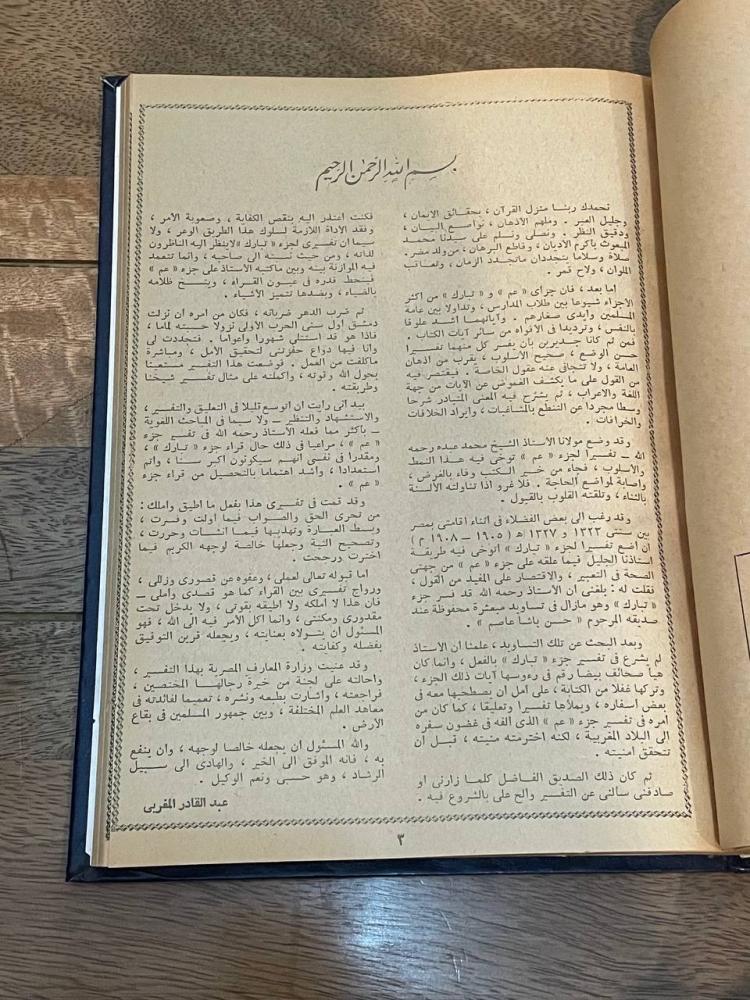 بسم الله الرحمن الرحيم
نحمدك ربنا منزل القرآن ، بحقائق الايمان ،
وجليل العبر . وملهم الأذهان ، نواصع البيان ،
ودقيق النظر . ونصلى ونسلم على سيدنا محمد
المبعوث بأكرم الأديان ، وقاطع البرهان ، من ولد مضر .
صلاة وسلاما يتجددان ماتجدد الزمان ، وتعاقب
الملوان ، ولاح قمر .
اما بعد ، فان جزأى « عم » و « تبارك » من أكثر
الأجزاء شيوعا بين طلاب المدارس ، وتداولا بين عامة
المسلمين وأيدى صغارهم . وآياتهما أشد علوقا
بالنفس ، وترديدا فى الافواه من سائر آيات الكتاب .
فمن ثم كانا جديرين بأن يفسر كل منهما تفسيرا
حسن الوضع ، صحيح الأسلوب ، يقرب من أذهان
العامة ، ولا تتجافى عنه عقول الخاصة . فيقتصر فيه
من القول على ما يكشف الغموض عن الآيات من جهة
اللغة والاعراب ، ثم يشرح فيه المعنى المتبادر شرحا
وسطا مجردا عن التنطع بالمشاغبات ، وايراد الخلافات
والخرافات .
وقد وضع مولانا الاستاذ الشيخ محمد عبده رحمه
الله - تفسيرا لجزء « عم » توخى فيه هذا النمط
والأسلوب ، فجاء من خير الكتب وفاء بالغرض ،
واصابة لمواضع الحاجة . فلا غرو اذا تناولته الألسنة
بالثناء ، وتلقته القلوب بالقبول .
وقد رغب الى بعض الفضلاء فى أثناء اقامتى بمصر
بين سنتى ١٣٢٣ و ١٣٢٧ هـ ( ١٩٠٥ - ١٩٠٨ م )
أن أضع تفسيرا لجزء « تبارك » أتوخى فيه طريقة
أستاذنا الجليل فيما علقه على جزء « عم » من جهتى
الصحة فى التعبير ، والاقتصار على المفيد من القول ،
فقلت له : بلغنى أن الاستاذ رحمه الله قد فسر جزء
« تبارك » وهو مازال فى تساويد مبعثرة محفوظة عند
صديقه المرحوم « حسن باشا عاصم » .
وبعد البحث عن تلك التساويد ، علمنا أن الاستاذ
لم يشرع فى تفسير جزء « تبارك » بالفعل ، وانما كان
هيأ صحائف بيضا رقم فى رءوسها آيات ذلك الجزء ،
وتركها غفلا من الكتابة ، على أمل أن يصطحبها معه فى
بعض أسفاره ، ويملأها تفسيرا وتعليقا ، كما كان من
أمره فى تفسير جزء « عم » الذى ألفه فى غضون سفره
الى البلاد المغربية ، لكنه اخترمته منيته ، قبل أن
تتحقق أمنيته .
ثم كان ذلك الصديق الفاضل كلما زارنى أو
صادفنى سألنى عن التفسير وألح على بالشروع فيه .
فكنت أعتذر اليه بنقص الكفاية ، وصعوبة الأمر ،
وفقد الأداة اللازمة لسلوك هذا الطريق الوعر ، ولا
سيما أن تفسيرى لجزء « تبارك » لاينظر اليه الناظرون
لذاته ، ومن حيث نسبته الى صاحبه ، وانما تتعمد
فيه الموازنة بينه وبين ماكتبه الاستاذ على جزء « عم »
فينحط قدره فى عيون القراء ، وينسخ ظلامه
بالضياء ، وبضدها تتميز الأشياء .
ثم ضرب الدهر ضرباته ، فكان من أمره ان نزلت
دمشق أول سنى الحرب الأولى نزولا حسبته لماما ،
فاذا هو قد استتلى شهورا وأعواما . فتجددت لى
وأنا فيها دواع حفزتنى لتحقيق الأمل ، ومباشرة
ماكلفت من العمل . فوضعت هذا التفسير مستعينا
بحول الله وقوته ، وأكملته على مثال تفسير شيخنا
وطريقته .
بيد أنى رأيت أن أتوسع قليلا فى التعليق والتفسير ،
والاستشهاد والتنظير - ولا سيما فى المباحث اللغوية
- بأكثر مما فعله الأستاذ رحمه الله فى تفسير جزء
« عم » ، مراعيا فى ذلك حال قراء جزء « تبارك » ،
ومقدرا فى نفسى أنهم سيكونون أكبر سنا ، وأتم
استعدادا ، وأشد اهتماما بالتحصيل من قراء جزء
« عم » .
وقد قمت فى تفسيرى هذا بفعل ما أطيق وأملك :
من تحرى الحق والصواب فيما أولت وفسرت ،
وبسط العبارة وتهذيبها فيما أنشأت وحررت ،
وتصحيح النية وجعلها خالصة لوجهه الكريم فيما
اخترت ورجحت .
أما قبوله تعالى لعملى ، وعفوه عن قصورى وزللى ،
ورواج تفسيرى بين القراء كما هو قصدى وأملى -
فان هذا لا أملكه ولا أطيقه بقوتى ، ولا يدخل تحت
مقدورى ومكنتى ، وانما أكل الأمر فيه الى الله ، فهو
المسئول أن يتولاه بعنايته ، ويجعله قرين التوفيق
بفضله وكفايته .
وقد عنيت وزارة المعارف المصرية بهذا التفسير ،
وأحالته على لجنة من خيرة رجالها المختصين ،
فراجعته ، وأشارت بطبعه ونشره ، تعميما لفائدته فى
معاهد العلم المختلفة ، وبين جمهور المسلمين فى بقاع
الأرض .
والله المسئول أن يجعله خالصا لوجهه ، وأن ينفع
به ، فانه الموفق الى الخير ، والهادى الى سبيل
الرشاد ، وهو حسبى ونعم الوكيل .
عبد القادر المغربى
٣